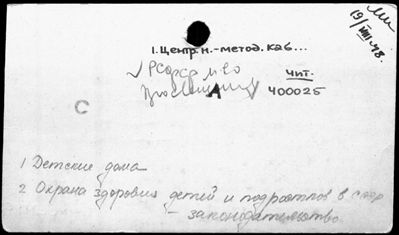 Ми
19/VIII-48.
1. Центр. н.-метод. каб...
√ РСФСР мво
чит.
А
400025
С
1 Детские дома
2 Охрана здоровия детей и подростков в ссср
– законодательство